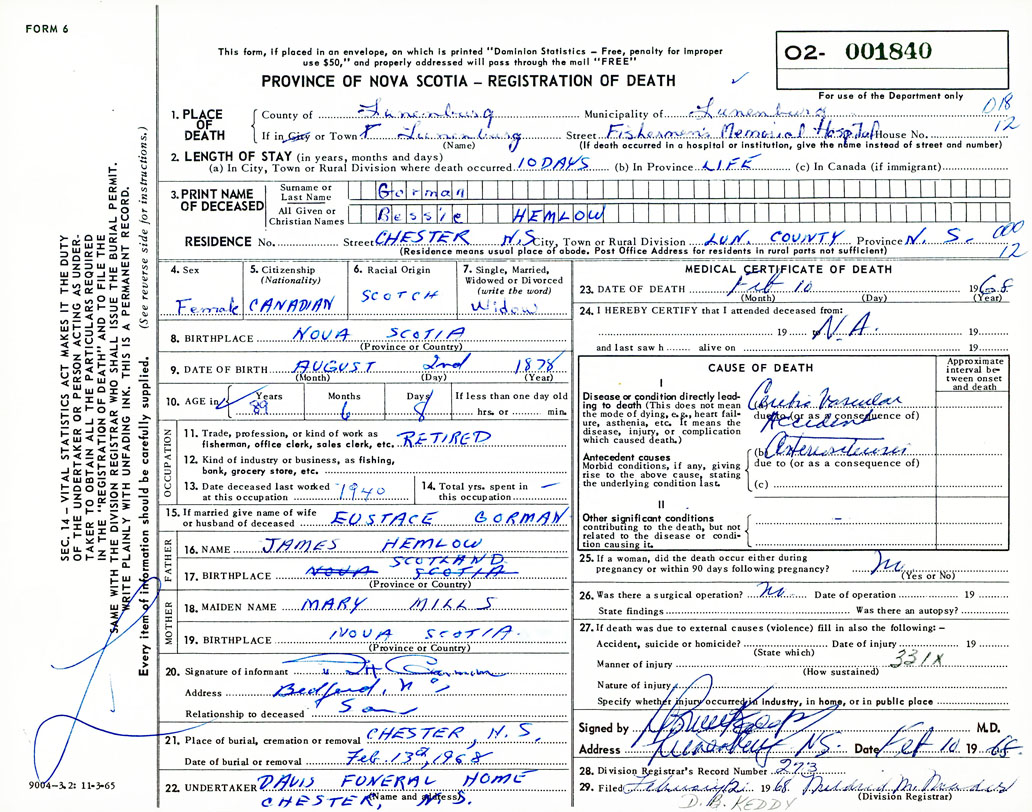 FORM 6
This form, if placed in an envelope, on which is printed "Dominion Statistics – Free, penalty for improper
use $50," and properly addressed will pass through the mail "FREE"
PROVINCE OF NOVA SCOTIA – REGISTRATION OF DEATH
02- 001840
For use of the Department only
018
12
1. PLACE OF DEATH
County of Lunenburg Municipality of Lunenburg
If in City or Town Lunenburg Street Fishermen's Memorial Hospital House No.
(Name) (If death occurred in a hospital or institution, give the name instead of street and number)
2. LENGTH OF STAY (in years, months and days)
(a) In City, Town or Rural Division where death occurred 10 DAYS (b) In Province LIFE (c) In Canada (if immigrant)
3. PRINT NAME OF DECEASED
Surname or Last Name Gorman
All Given or Christian Names Bessie HEMLOW
RESIDENCE No. Street CHESTER N.S. City, Town or Rural Division LUN. COUNTY Province N. S.
000
12
(Residence means usual place of abode. Post Office Address for residents in rural parts not sufficient)
4. Sex
Female
5. Citizenship
(Nationality)
CANADIAN
6. Racial Origin
SCOTCH
7. Single, Married,
Widowed or Divorced
(write the word)
Widow
8. BIRTHPLACE NOVA SCOTIA
(Province or Country)
9. DATE OF BIRTH AUGUST 2nd 1878
(Month) (Day) (Year)
10. AGE in
Years Months Days If less than one day old
89 6 8 hrs. or min.
OCCUPATION
11. Trade, profession, or kind of work as
fisherman, office clerk, sales clerk, etc. RETIRED
12. Kind of industry or business, as fishing,
bank, grocery store, etc.
13. Date deceased last worked
at this occupation 1940
14. Total yrs. spent in
this occupation –
15. If married give name of wife
or husband of deceased EUSTACE GORMAN
FATHER
16. NAME JAMES HEMLOW
SCOTLAND
17. BIRTHPLACE NOVA SCOTIA
(Province or Country)
MOTHER
18. MAIDEN NAME MARY MILLS
19. BIRTHPLACE NOVA SCOTIA.
(Province or Country)
20. Signature of informant Gorman
Address Bedford, N S
Relationship to deceased Son
21. Place of burial, cremation or removal CHESTER, N.S.
Date of burial or removal Feb. 13th, 1968
22. UNDERTAKER DAVIS FUNERAL HOME
(Name and address)
CHESTER, N. S.
MEDICAL CERTIFICATE OF DEATH
23. DATE OF DEATH Feb 10 1968
(Month) (Day) (Year)
24. I HEREBY CERTIFY that I attended deceased from:
19 N.A. 19
and last saw h alive on 19
CAUSE OF DEATH
Approximate
interval be-
tween onset
and death
I
Disease or condition directly lead-
ing to death (This does not mean
the mode of dying, e.g., heart fail-
ure, asthenia, etc. It means the
disease, injury, or complication
which caused death.)
Vascular
due to (or as a consequence of)
Accident
Antecedent causes
Morbid conditions, if any, giving
rise to the above cause, stating
the underlying condition last.
(b)
due to (or as a consequence of)
(c)
II
Other significant conditions
contributing to the death, but not
related to the disease or condi-
tion causing it.
–
25. If a woman, did the death occur either during
pregnancy or within 90 days following pregnancy? No
(Yes or No)
26. Was there a surgical operation? No Date of operation 19
State findings Was there an autopsy?
27. If death was due to external causes (violence) fill in also the following: –
Accident, suicide or homicide? Date of injury 19
(State which)
331X
Manner of injury
(How sustained)
Nature of injury
Specify whether injury occurred in Industry, in home, or in public place
Signed by M.D.
Address NS. Date Feb 10 1968.
28. Division Registrar's Record Number 273
29. Filed February 1968.
(Division Registrar)
D. B. KEDDY
SEC. 14 – VITAL STATISTICS ACT MAKES IT THE DUTY
OF THE UNDERTAKER OR PERSON ACTING AS UNDER-
TAKER TO OBTAIN ALL THE PARTICULARS REQUIRED
IN THE "REGISTRATION OF DEATH" AND TO FILE THE
SAME WITH THE DIVISION REGISTRAR WHO SHALL ISSUE THE BURIAL PERMIT.
WRITE PLAINLY WITH UNFADING INK. THIS IS A PERMANENT RECORD.
Every item of information should be carefully supplied. (See reverse side for instructions.)
9004-3.2: 11-3-65